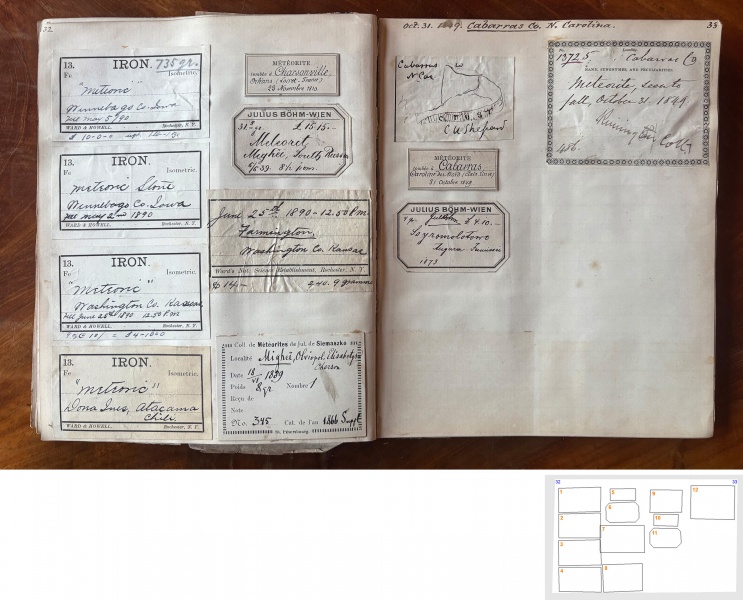 32
13.
IRON. 735 gr.
Fe
Isometric.
"Metroric"
Winnebago Co. Iowa
Fell May 2/90
WARD & HOWELL.
Rochester, N. Y.
13.
IRON.
Fe
Isometric.
"metroric Stone
Winnebago Co. Iowa
Fell may 2nd 1890
WARD & HOWELL.
Rochester, N. Y.
13.
IRON.
Fe
Isometric.
"Metroric"
Washington Co. Kansas
Fell June 25th 1890 12.50 P.M
WARD & HOWELL.
Rochester, N. Y.
13.
IRON.
Fe
Isometric.
"metroric"
Dona Inez, Atacama
Chili.
WARD & HOWELL.
Rochester, N. Y.
MÉTÉORITE
tombée à Charsonville,
Orléans (Loiret, France)
23 Novembre 1810
JULIUS BÖHM-WIEN
£ 15.15.-
Meteorit,
Mighei, South Russia
8h p.m.
June 25th 1890-12.50 P.M
Farmington,
Washington Co. Kansas
Ward's Nat. Science Establishment, Rochester, N. Y.
940.9 gramm
Coll. de Météorites du Jul. de Siemaszko
Localité Migheï, Olviopol, Elisabetgrad
Cherson
Date 18/VI 1889
Poids 8 gr. Nombre 1
Reçu de
Note
No. 345 Cat. de l'an 1866 Suppl.
St. Pétersbourg.
Oct. 31. 1849. Cabarras Co. N. Carolina.
33
Cabarras
N Car
C U Shepard
MÉTÉORITE
tombée à Cabarras
Caroline du Nord (Etats Unis)
31 Octobre 1849
JULIUS BÖHM-WIEN
£ 4.10.-
Szyromolotowo
Angara
1873
No.
1372.5
Locality
Cabarras Co
NAME, SYNONYMS, AND PECULIARITIES.
Meteorite, seen to
fall, October 31. 1849
486.
32
33
1
2
3
4
5
6
7
8
9
10
11
12